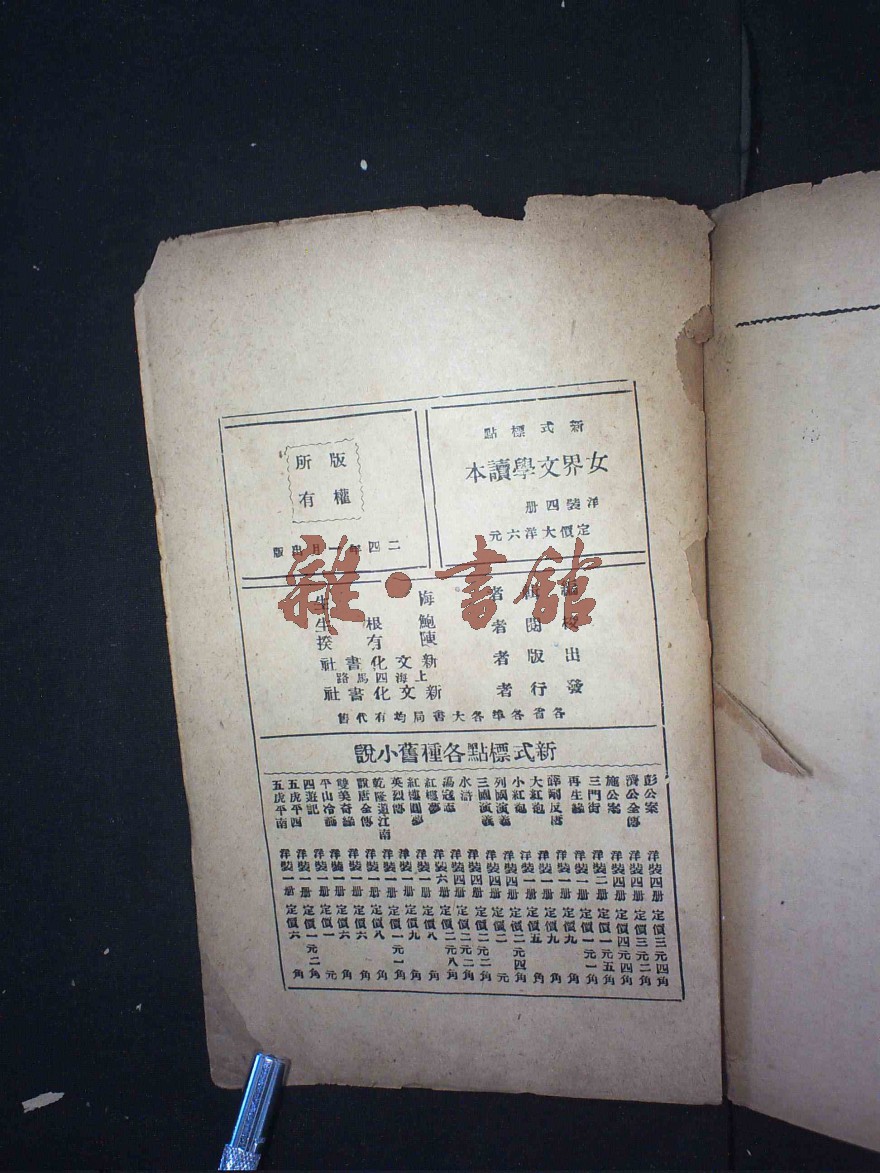 新式標點
女界文學讀本
洋裝四册
定價大洋六元
版權
所有
二四年一月出版
編輯者 海
校閱者 鮑根生
陳有揆
出版者 新文化書社
上海四馬路
發行者 新文化書社
各省各埠各大書局均有代售
新式標點各種舊小說
彭公案 洋裝四册 定價三元四角
濟公全傳 洋裝四册 定價三元二角
施公案 洋裝四册 定價四元四角
三門街 洋裝二册 定價一元五角
再生緣 洋裝一册 定價一元一角
薛剛反唐 洋裝一册 定價九角
大紅袍 洋裝一册 定價九角
小紅袍 洋裝一册 定價五角
列國演義 洋裝四册 定價二元四角
三國演義 洋裝四册 定價二元
水滸 洋裝四册 定價二元二角
蕩寇志 洋裝四册 定價二元二角
紅樓夢 洋裝六册 定價二元八角
紅樓圓夢 洋裝一册 定價八角
英烈傳 洋裝一册 定價九角
乾隆遊江南 洋裝一册 定價一元一角
說唐全傳 洋裝一册 定價八角
雙美奇緣 洋裝一册 定價六角
平山冷燕 洋裝一册 定價六角
四遊記 洋裝一册 定價一元
五虎平西 洋裝一册 定價一元二角
五虎平南 洋裝一册 定價六角
雜·書館